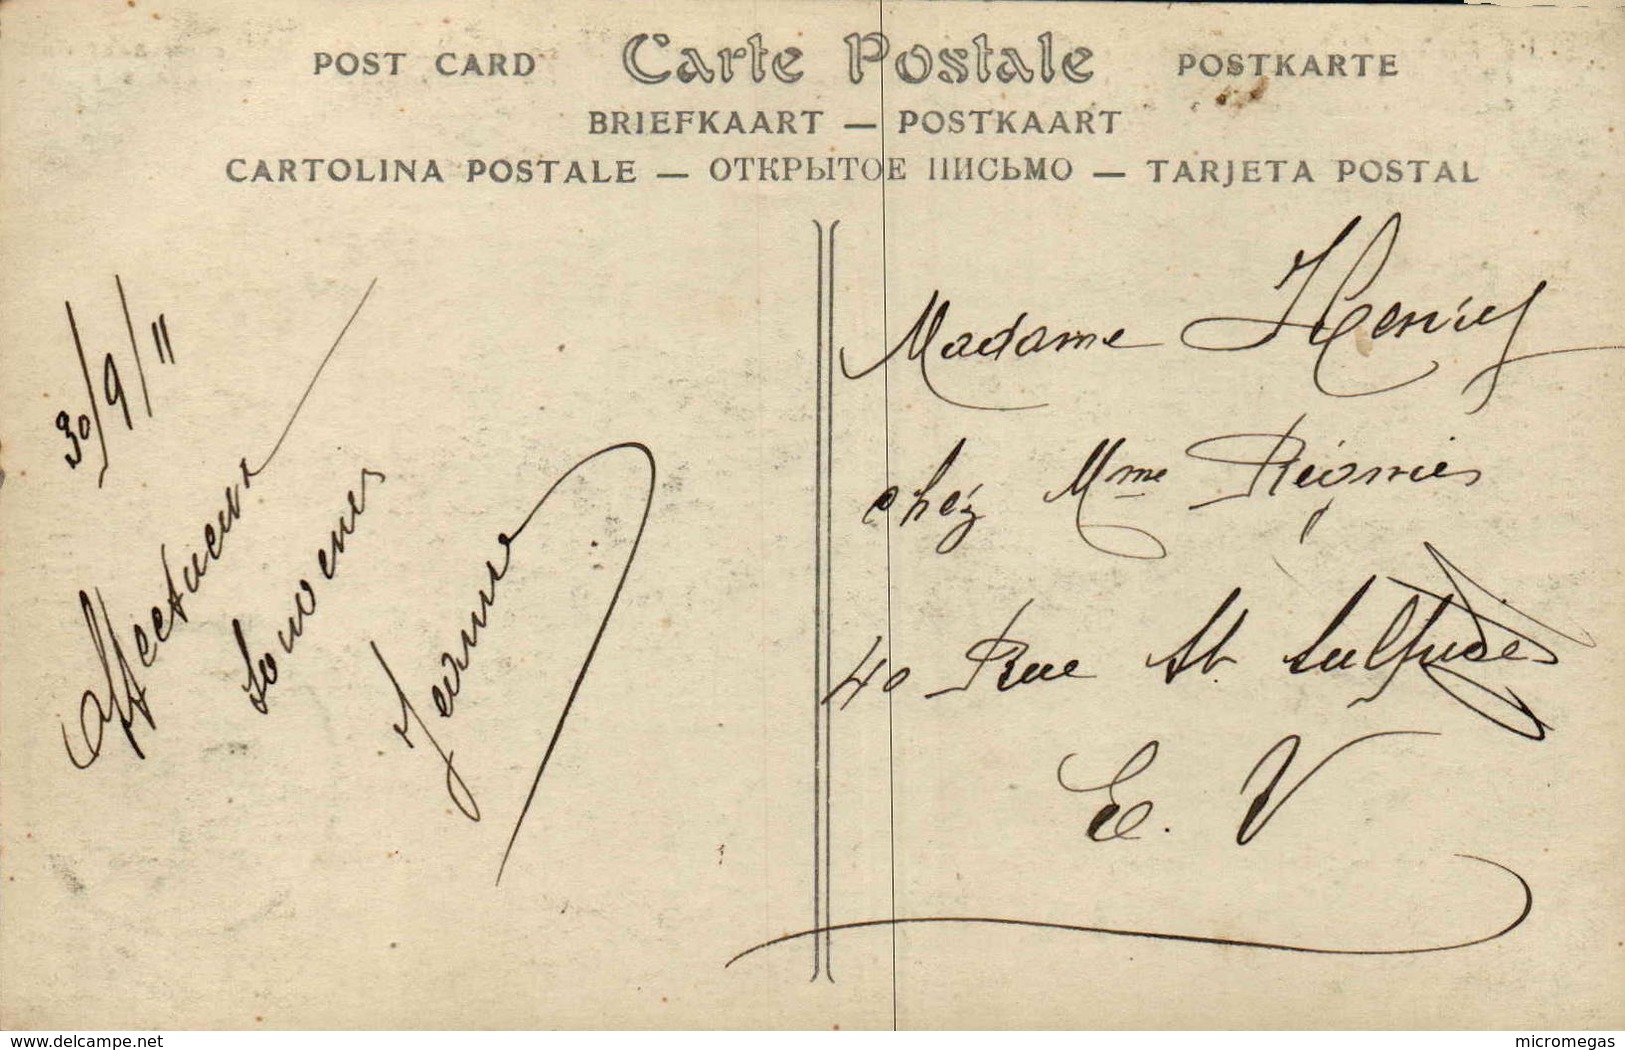 POST CARD Carte Postale POSTKARTE
BRIEFKAART — POSTKAART
CARTOLINA POSTALE — ОТКРЫТОЕ ПИСЬМО — TARJETA POSTAL
30/9/11
Affectueux
Souvenirs
Jeanne
Madame Henry
chez Mme Régnier
40 Rue St Sulpice
E. V
www.delcampe.net
micromegas